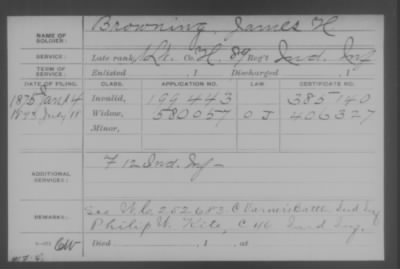 NAME OF SOLDIER: Browning, James H
SERVICE: Late rank 1 Lt. Co. H, 89 Reg't Ind. Inf
TERM OF SERVICE: Enlisted , 1 Discharged , 1
DATE OF FILING. CLASS. APPLICATION NO. LAW. CERTIFICATE NO.
1875 Jan 14 Invalid, 199 443 385740
Jul 11 Widow, 580057 O J 406327
Minor,
ADDITIONAL SERVICES: F 12 Ind. Inf —
REMARKS: See W.C. 252683. Ind Inf
Philip W. C Ind Inf.
Died , 1 , at